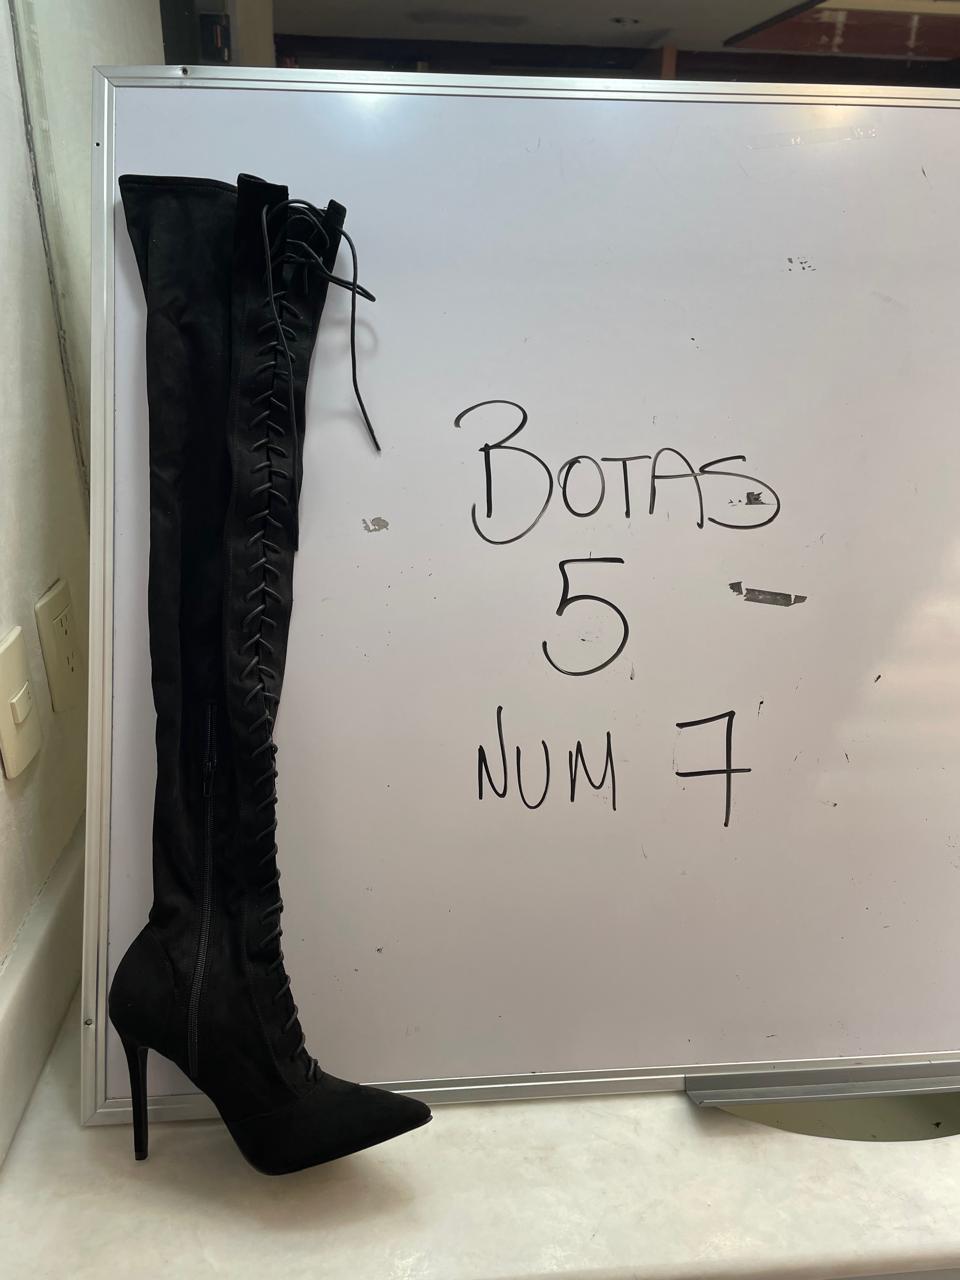 BOTAS
5
NUM 7